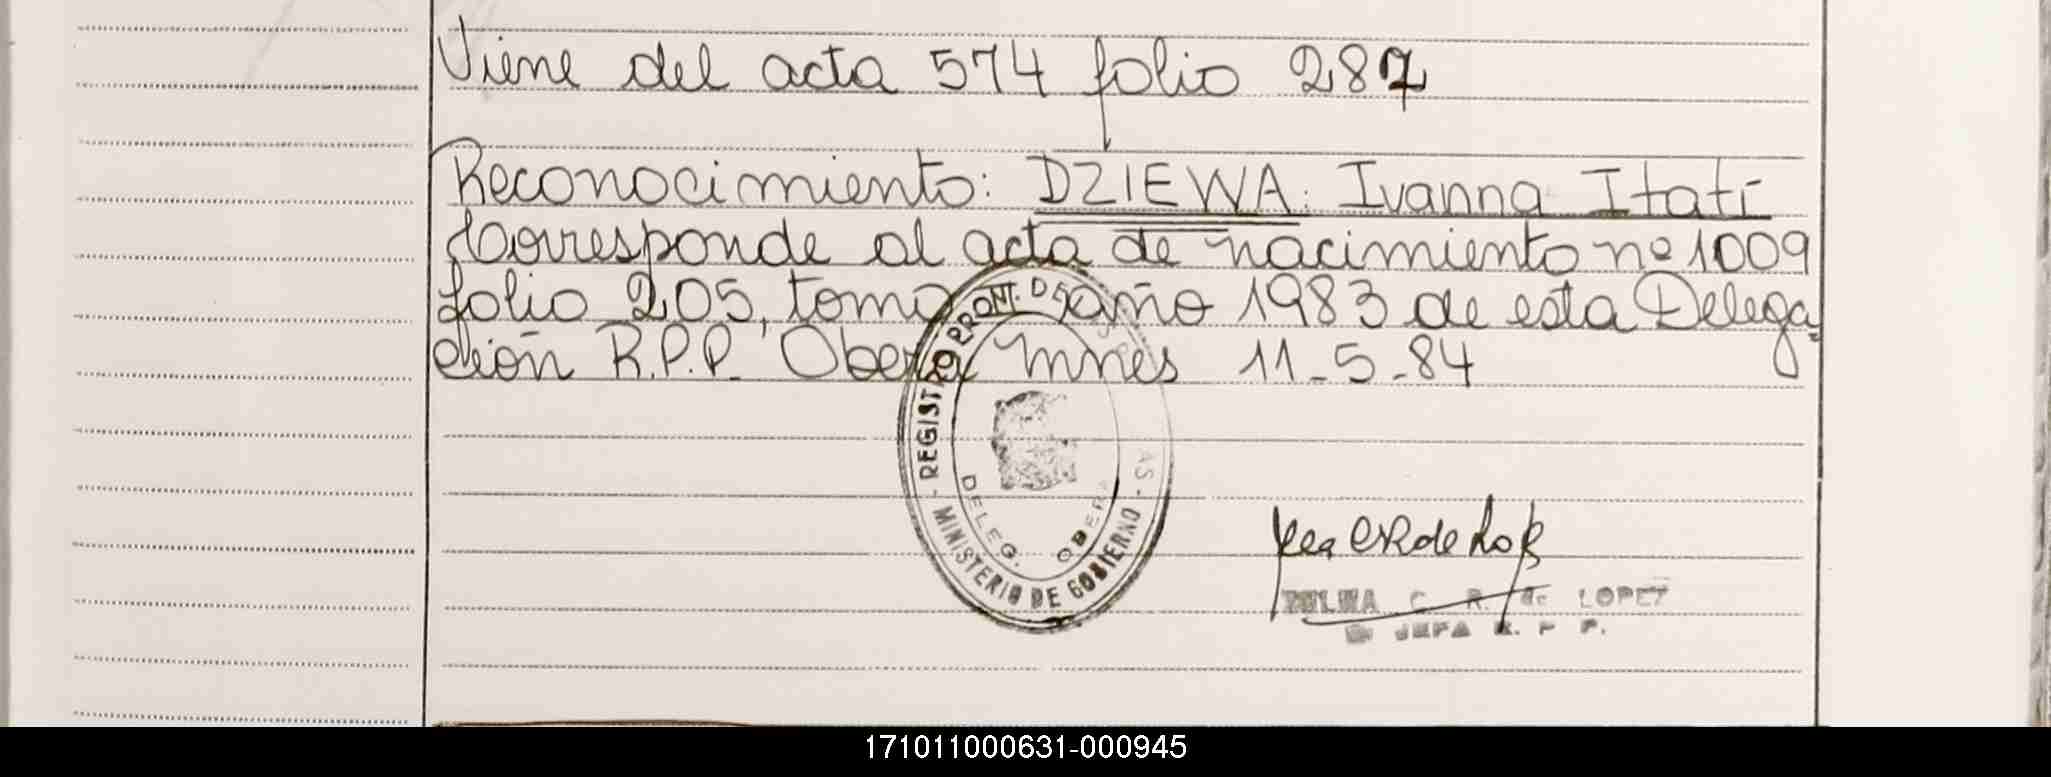 Viene del acta 574 folio 287
Reconocimiento: DZIEWA: Ivanna Itatí
Corresponde al acta de nacimiento nº 1009
folio 205, tomo año 1983 de esta Delega=
ción R.P.P. Oberá Mnes 11-5-84
REGISTRO PRONT. DE
AS
DELEG. OBERÁ
MINISTERIO DE GOBIERNO
ZULMA C. R. de LOPEZ
JEFA R. P. P.
171011000631-000945